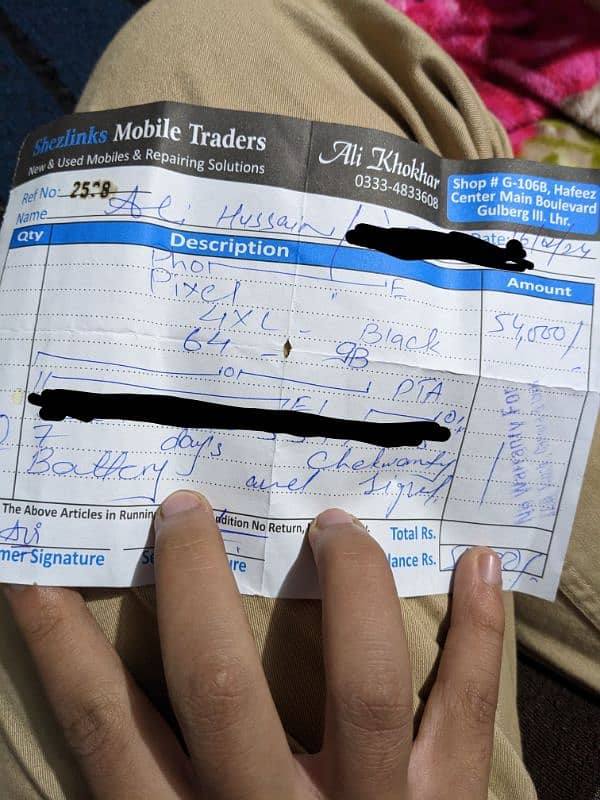 Shezlinks Mobile Traders
New & Used Mobiles & Repairing Solutions
Ali Khokhar
0333-4833608
Shop # G-106B, Hafeez
Center Main Boulevard
Gulberg III. Lhr.
Ref No:
Name Ali Hussain
Date:
Qty Description Amount
Pixel
4XL - Black 54,000/
64 - GB
PTA
7 days
Battery and Signal
No Warranty For
The Above Articles in Runnin ndition No Return,
Total Rs.
mer Signature ure lance Rs.